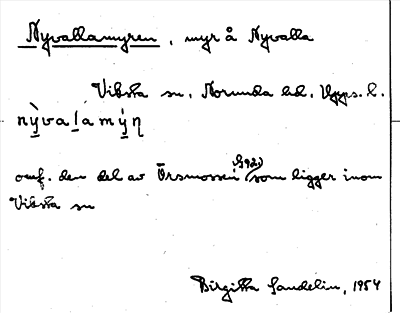 Nyvallamyren, myr å Nyvalla
Viksta sn, Norunda hd, Upps. l.
nỳ̱va l̲a mý̱n
omf. den del av Örsmossen (592) som ligger inom
Viksta sn
Birgitta Sandelin, 1954